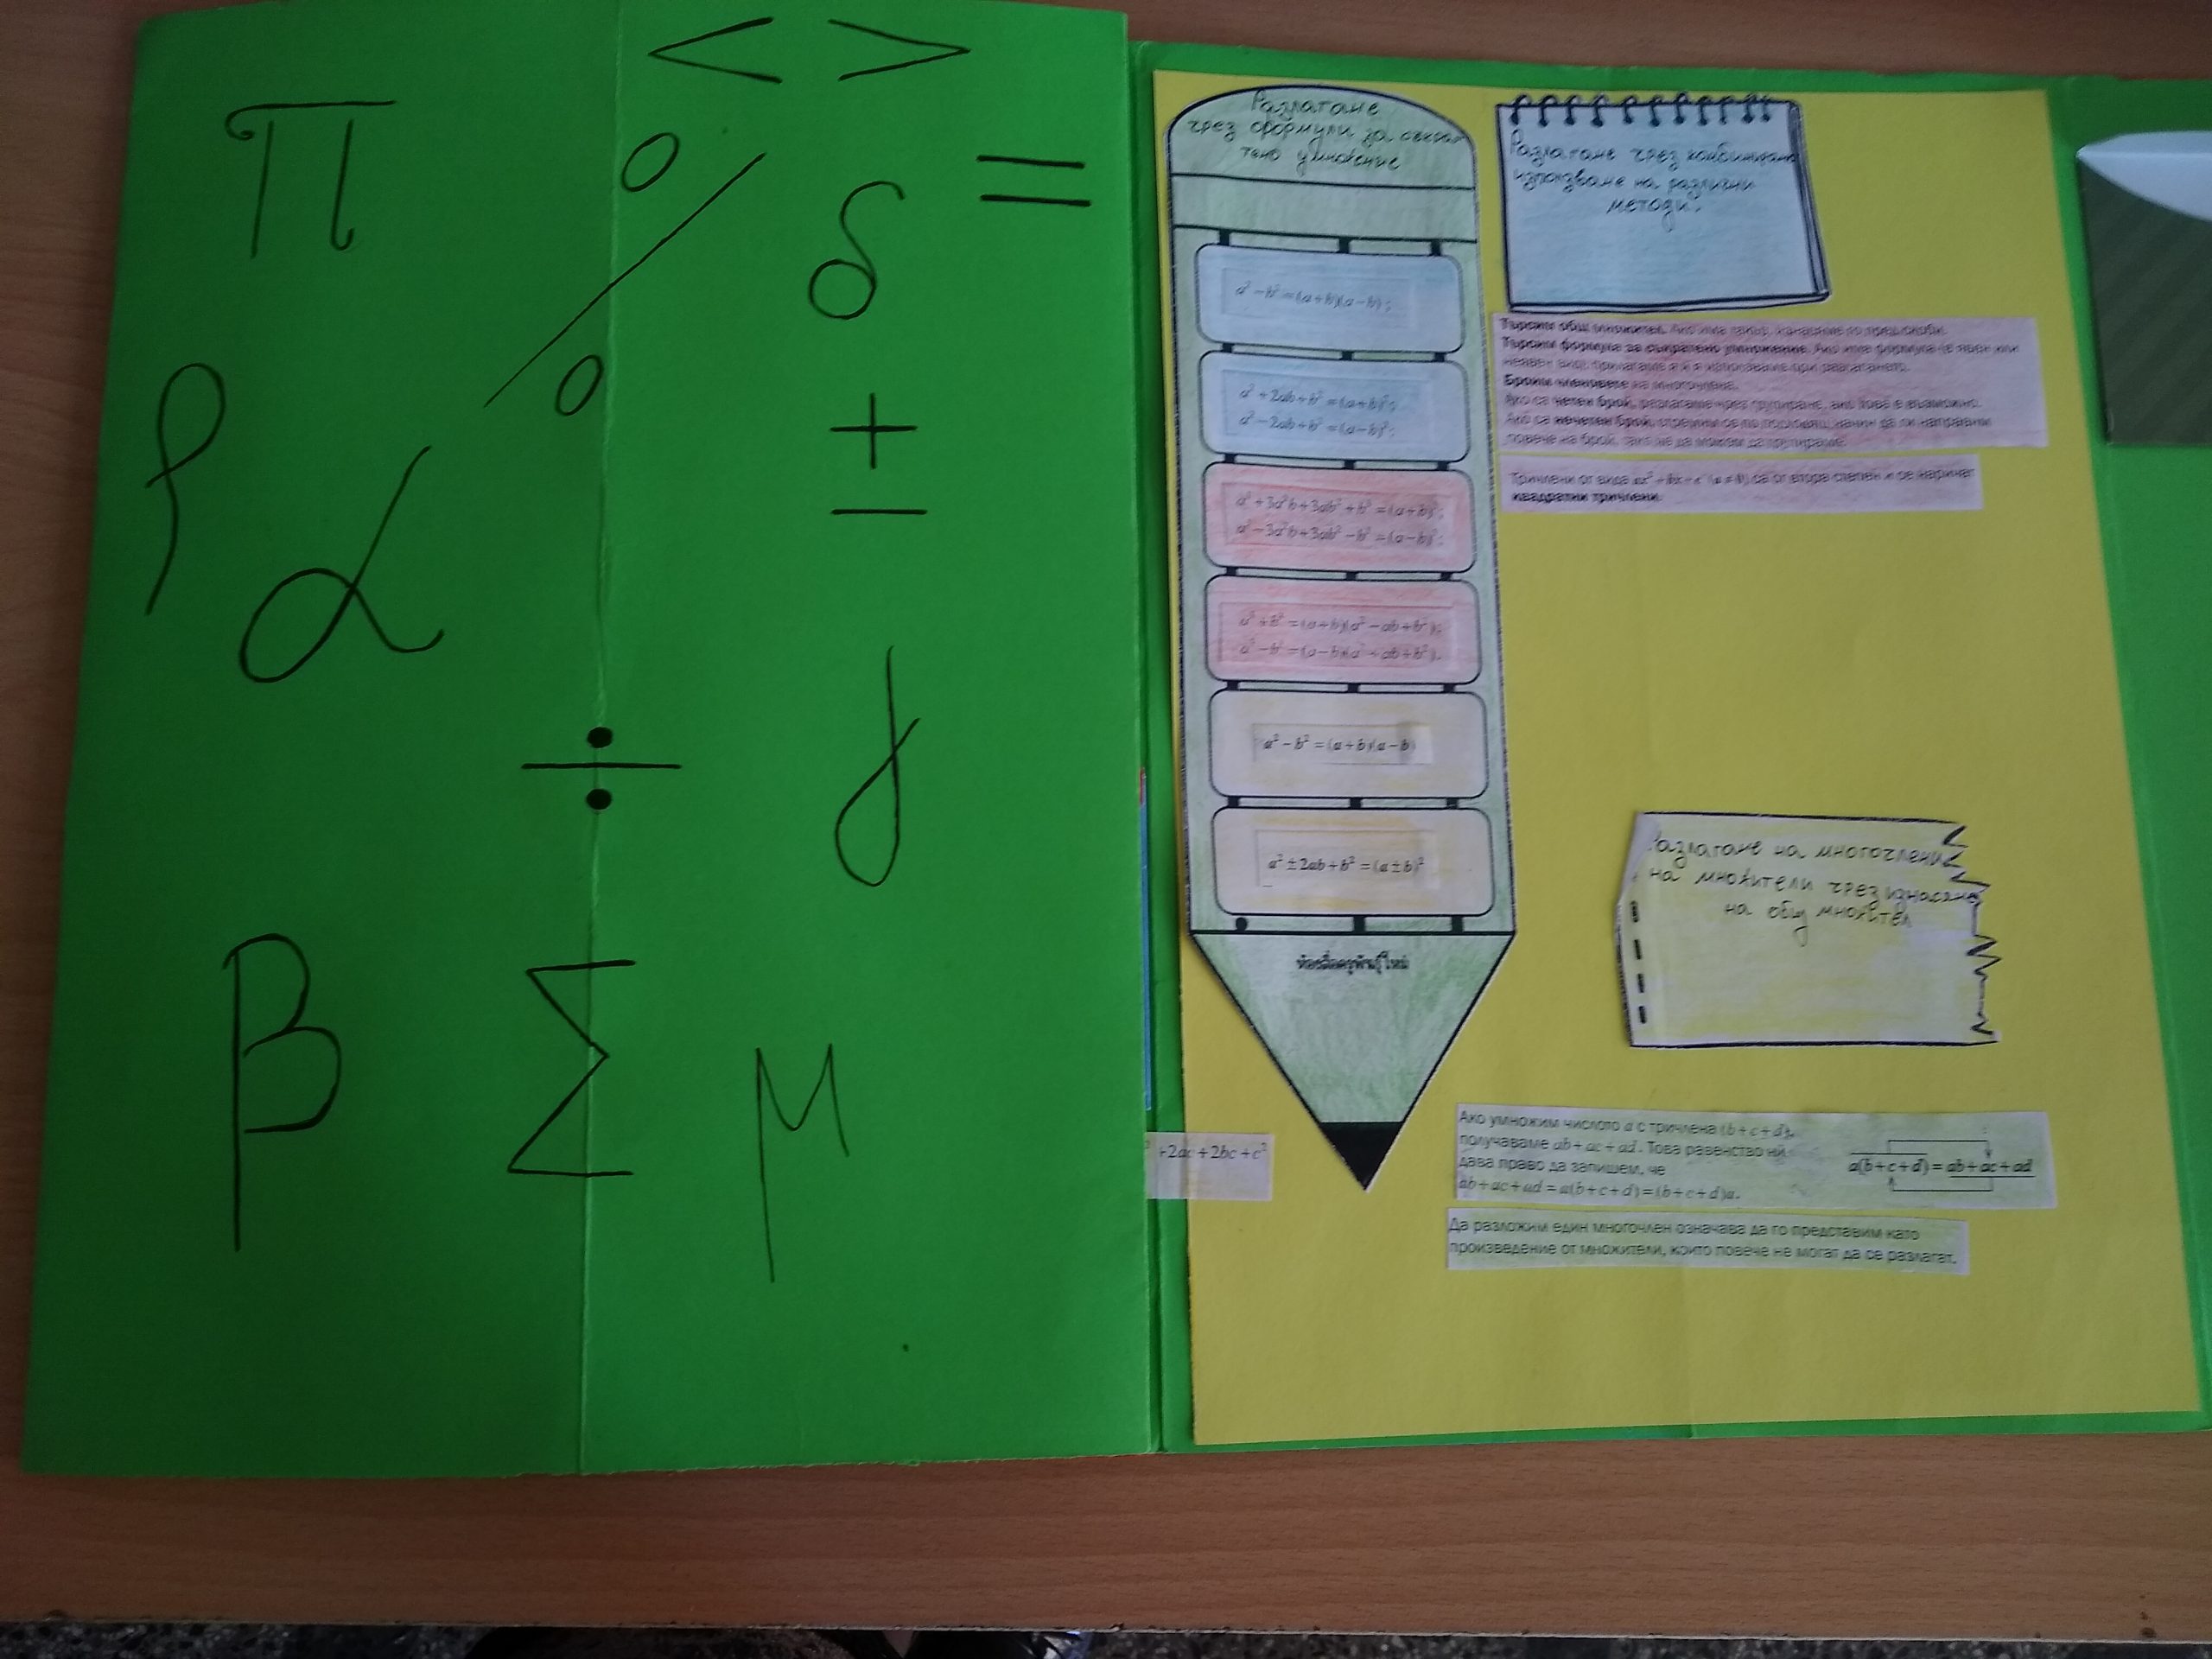 < >
π
%
δ
=
ρ
α
+
−
÷
γ
β
Σ
μ
Разлагане
чрез формули за съкра-
тено умножение
a² − b² = (a+b)(a−b);
a² + 2ab + b² = (a+b)²;
a² − 2ab + b² = (a−b)²;
a³ + 3a²b + 3ab² + b³ = (a+b)³;
a³ − 3a²b + 3ab² − b³ = (a−b)³;
a³ + b³ = (a+b)(a² − ab + b²);
a³ − b³ = (a−b)(a² + ab + b²).
a² − b² = (a+b)(a−b)
a² ± 2ab + b² = (a ± b)²
ห้องสื่อครูพันธุ์ใหม่
+2ac+2bc+c²
Разлагане чрез комбинирано
използване на различни
методи.
Търсим общ множител. Ако има такъв, изнасяме го пред скоби.
Търсим формула за съкратено умножение. Ако има формула (в явен или
неявен вид), прилагаме я и я използваме при разлагането.
Броим членовете на многочлена.
Ако са четен брой, разлагаме чрез групиране, ако това е възможно.
Ако са нечетен брой, стремим се по подходящ начин да ги направим
повече на брой, така че да можем да групираме.
Тричлени от вида ax² + bx + c (a ≠ 0) са от втора степен и се наричат
квадратни тричлени.
Разлагане на многочлени
на множители чрез изнасяне
на общ множител
Ако умножим числото a с тричлена (b+c+d),
получаваме ab+ac+ad. Това равенство ни
дава право да запишем, че
ab+ac+ad=a(b+c+d)=(b+c+d)a.
a(b+c+d)=ab+ac+ad
Да разложим един многочлен означава да го представим като
произведение от множители, които повече не могат да се разлагат.